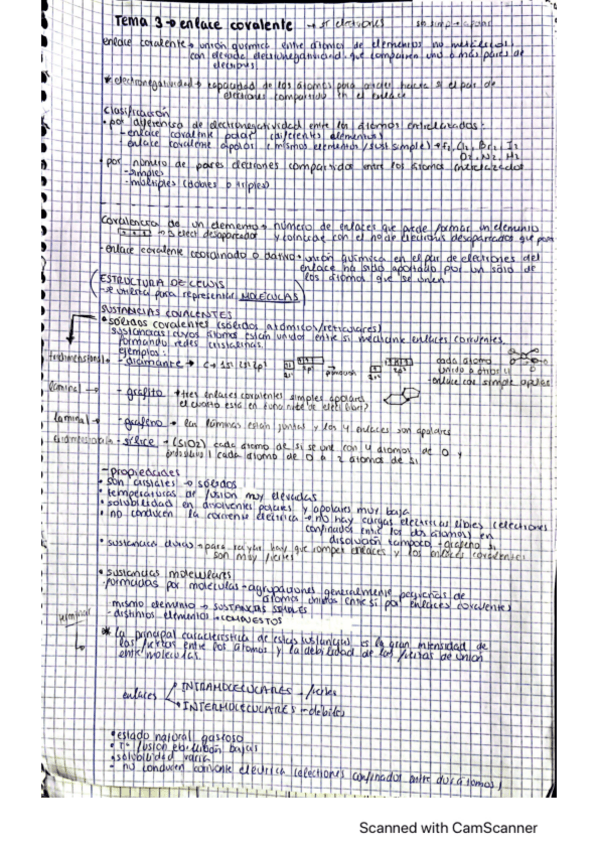 Tema 3 → enlace covalente
enlace covalente → unión química entre átomos de elementos no metálicos
con elevada electronegatividad que comparten uno o más pares de
electrones
* electronegatividad → capacidad de los átomos para atraer hacia sí el par de
electrones compartido en el enlace
Clasificación
• por diferencia de electronegatividad entre los átomos entrelazados:
- enlace covalente polar (diferentes elementos)
- enlace covalente apolar (mismos elementos / sust simple) → F2, Cl2, Br2, I2
O2, N2, H2
• por número de pares electrones compartidos entre los átomos entrelazados
- simples
- múltiples (dobles o triples)
covalencia de un elemento → número de enlaces que puede formar un elemento
y coincide con el nº de electrones desapareados que
• enlace covalente coordinado o dativo → unión química en el par de electrones del
enlace ha sido aportado por un solo de
los átomos que se unen
ESTRUCTURA DE LEWIS
- se utiliza para representar MOLÉCULAS
SUSTANCIAS COVALENTES
• sólidos covalentes (sólidos atómicos/reticulares)
sustancias cuyos átomos están unidos entre sí mediante enlaces covalentes
formando redes cristalinas.
ejemplos:
tridimensional → - diamante →
cada átomo
unido a otros 4
- enlace cov simple apolar
laminal → - grafito → tres enlaces covalentes simples apolares
el cuarto está en
laminal → - grafeno → las láminas están juntas y los 4 enlaces son apolares
- sílice → (SiO2) cada átomo de Si se une con 4 átomos de O y
cada átomo de O a 2 átomos de Si
- propiedades
• son cristales → sólidos
• temperaturas de fusión muy elevadas
• solubilidad en disolventes polares y apolares muy baja
• no conducen la corriente eléctrica → no hay cargas eléctricas libres (electrones
confinados entre los dos átomos) en
disolución tampoco - grafeno sí
• sustancias duras → para rayar hay que romper enlaces y los enlaces covalentes
son muy fuertes
• sustancias moleculares
- formadas por moléculas - agrupaciones generalmente pequeñas de
átomos unidos entre sí por enlaces covalentes
- mismo elemento → SUSTANCIAS SIMPLES
- distintos elementos → COMPUESTOS
* la principal característica de estas sustancias es la gran intensidad de
las fuerzas entre los átomos y la debilidad de las fuerzas de unión
entre moléculas.
enlaces
INTRAMOLECULARES - fuertes
INTERMOLECULARES - débiles
• estado natural gaseoso
• Tª fusión ebullición bajas
• solubilidad varía
- no conducen corriente eléctrica (electrones confinados entre dos átomos)
Scanned with CamScanner